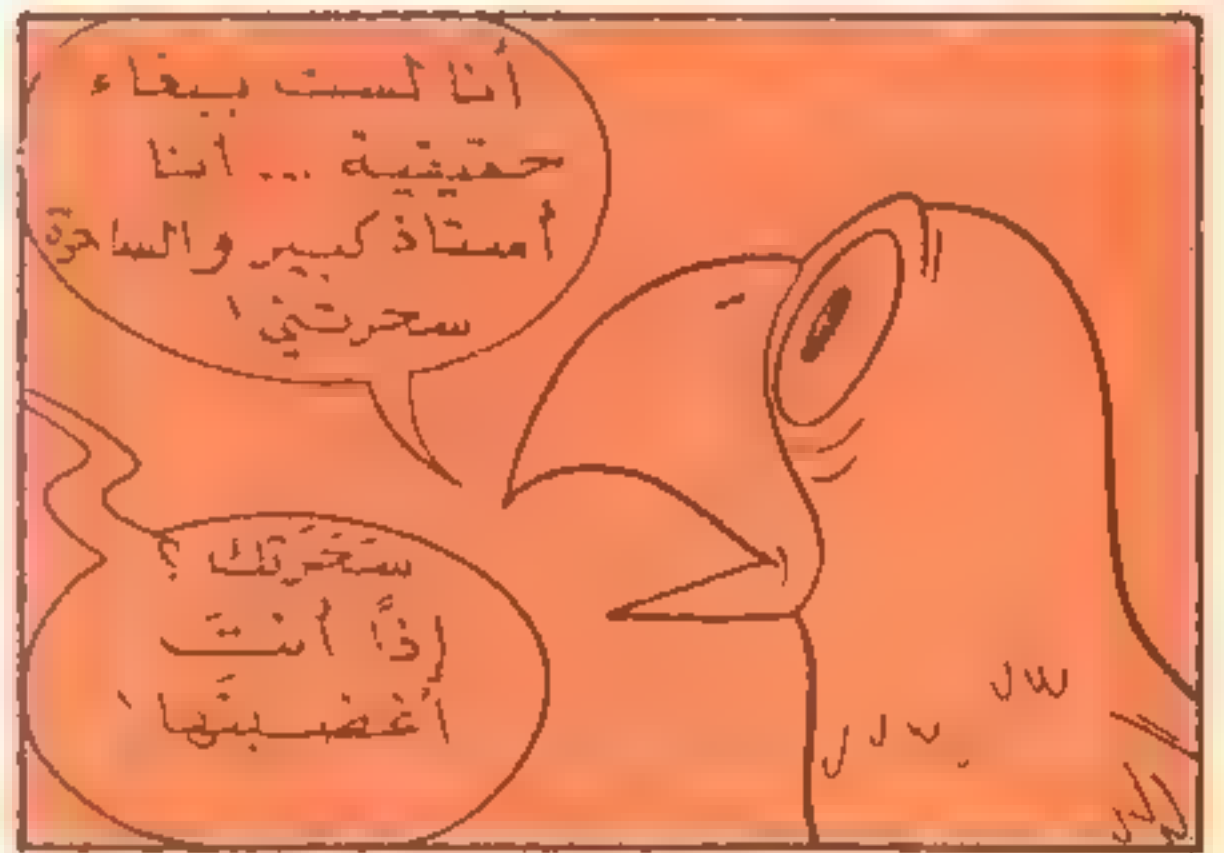 أنا لست ببغاء
حقيقية ... أنا
أستاذ كبير والساحرة
سحرتني!
سحَرَتْكَ ؟
إذًا أنتَ
أغضبتَها!